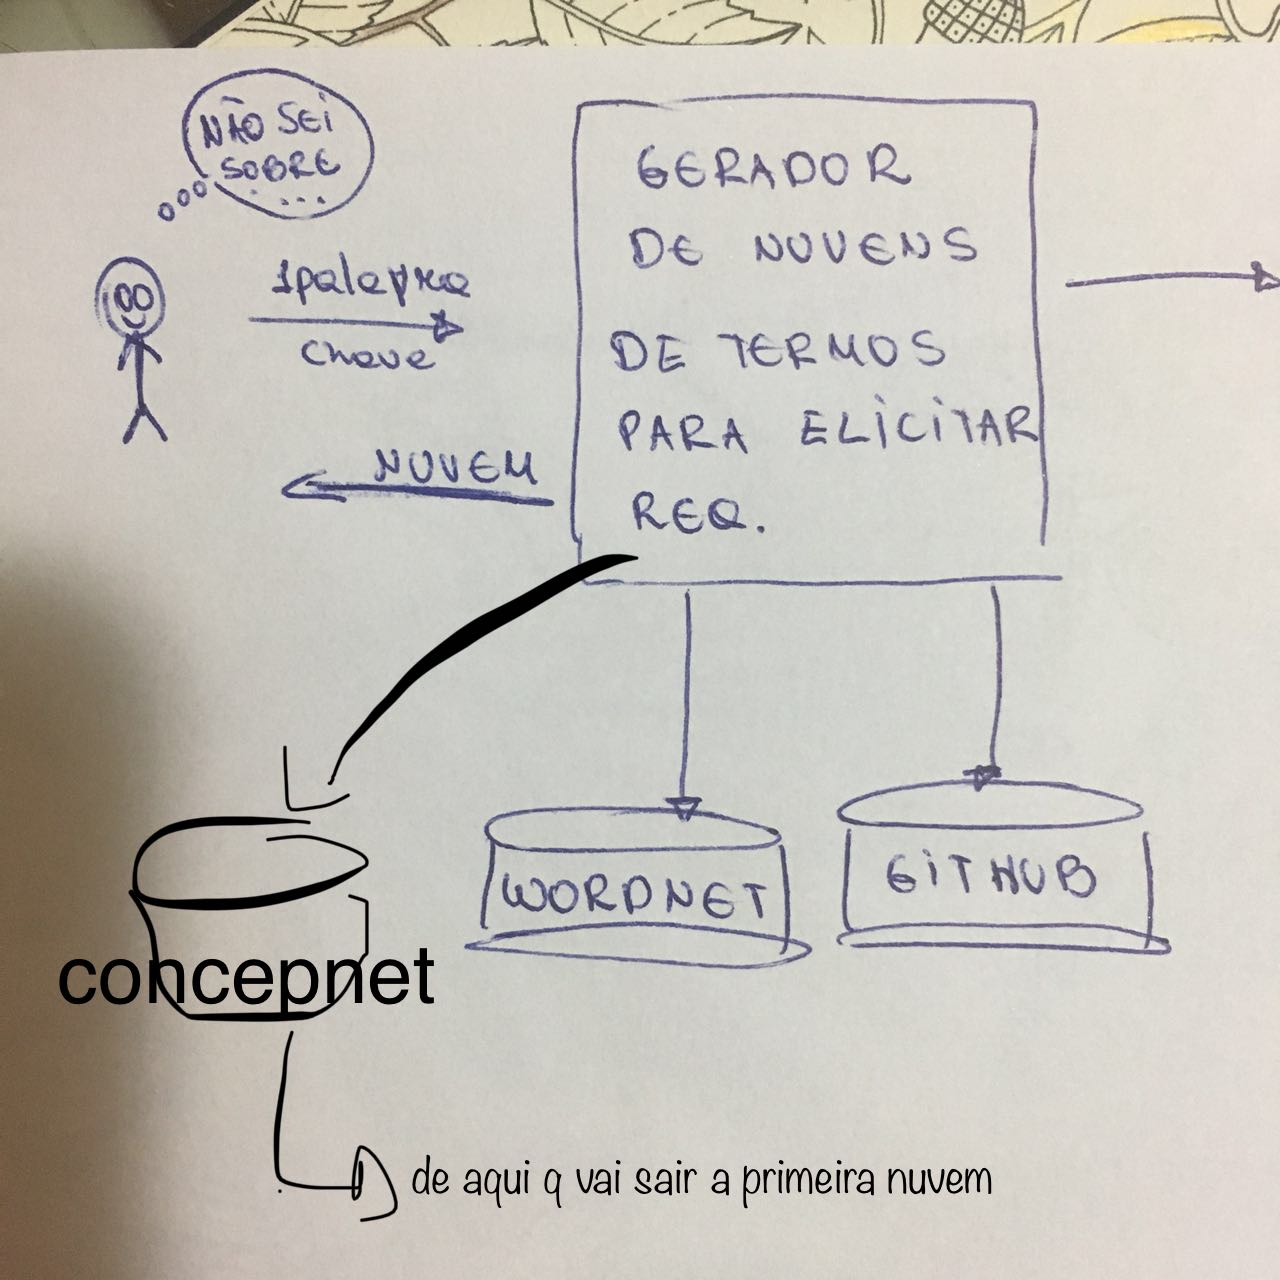 NÃO SEI
SOBRE
...
1 palavra
chave
NUVEM
GERADOR
DE NUVENS
DE TERMOS
PARA ELICITAR
REQ.
WORDNET
GITHUB
concepnet
de aqui q vai sair a primeira nuvem